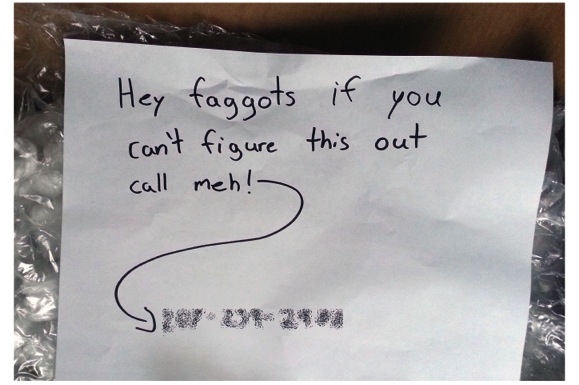 Hey faggots if you
can't figure this out
call meh!